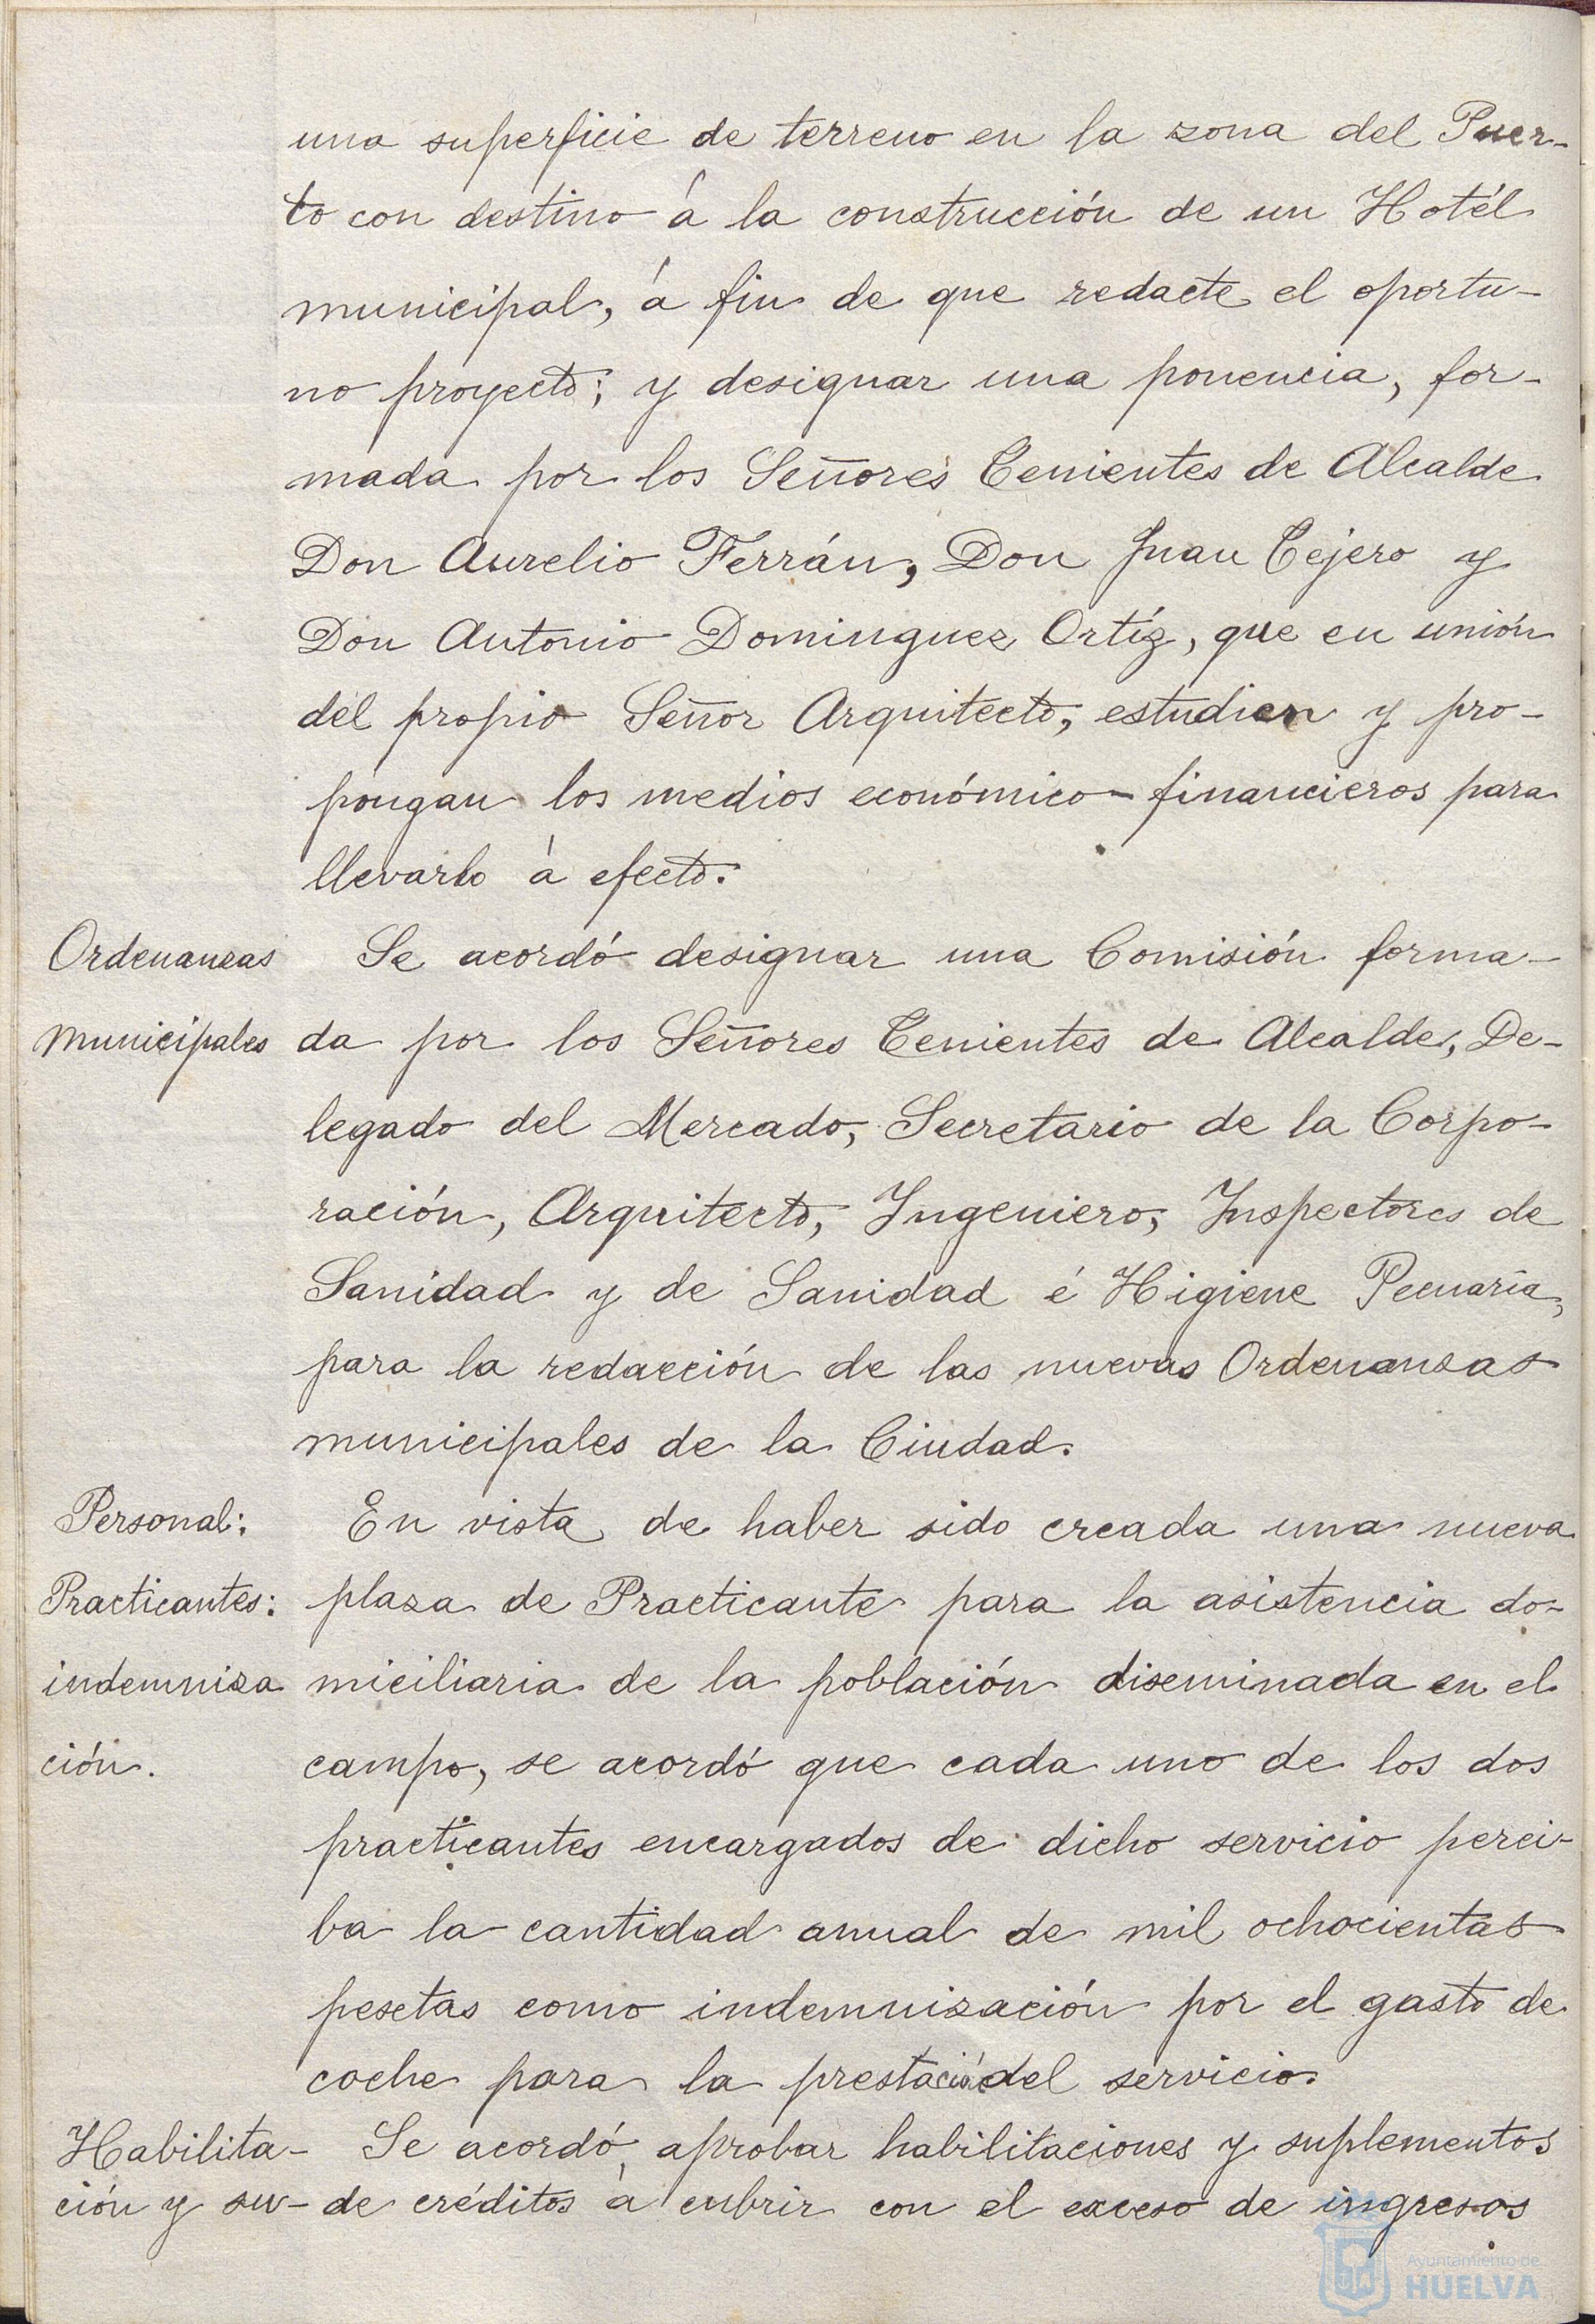 una superficie de terreno en la zona del Puer-
to con destino á la construcción de un Hotél
municipal, á fin de que redacte el oportu-
no proyecto; y designar una ponencia, for-
mada por los Señores Tenientes de Alcalde
Don Aurelio Ferrán, Don Juan Tejero y
Don Antonio Dominguez Ortíz, que en unión
del propio Señor Arquitecto, estudien y pro-
pongan los medios económico-financieros para
llevarlo á efecto.
Ordenanzas
municipales
Se acordó designar una Comisión forma-
da por los Señores Tenientes de Alcalde, De-
legado del Mercado, Secretario de la Corpo-
ración, Arquitecto, Ingeniero, Inspectores de
Sanidad y de Sanidad é Higiene Pecuaria,
para la redacción de las nuevas Ordenanzas
municipales de la Ciudad.
Personal:
Practicantes:
indemniza
ción.
En vista de haber sido creada una nueva
plaza de Practicante para la asistencia do-
miciliaria de la población diseminada en el
campo, se acordó que cada uno de los dos
practicantes encargados de dicho servicio perci-
ba la cantidad anual de mil ochocientas
pesetas como indemnización por el gasto de
coche para la prestació del servicio.
Habilita-
ción y su-
Se acordó aprobar habilitaciones y suplementos
de créditos á cubrir con el exceso de ingresos
Ayuntamiento de
HUELVA